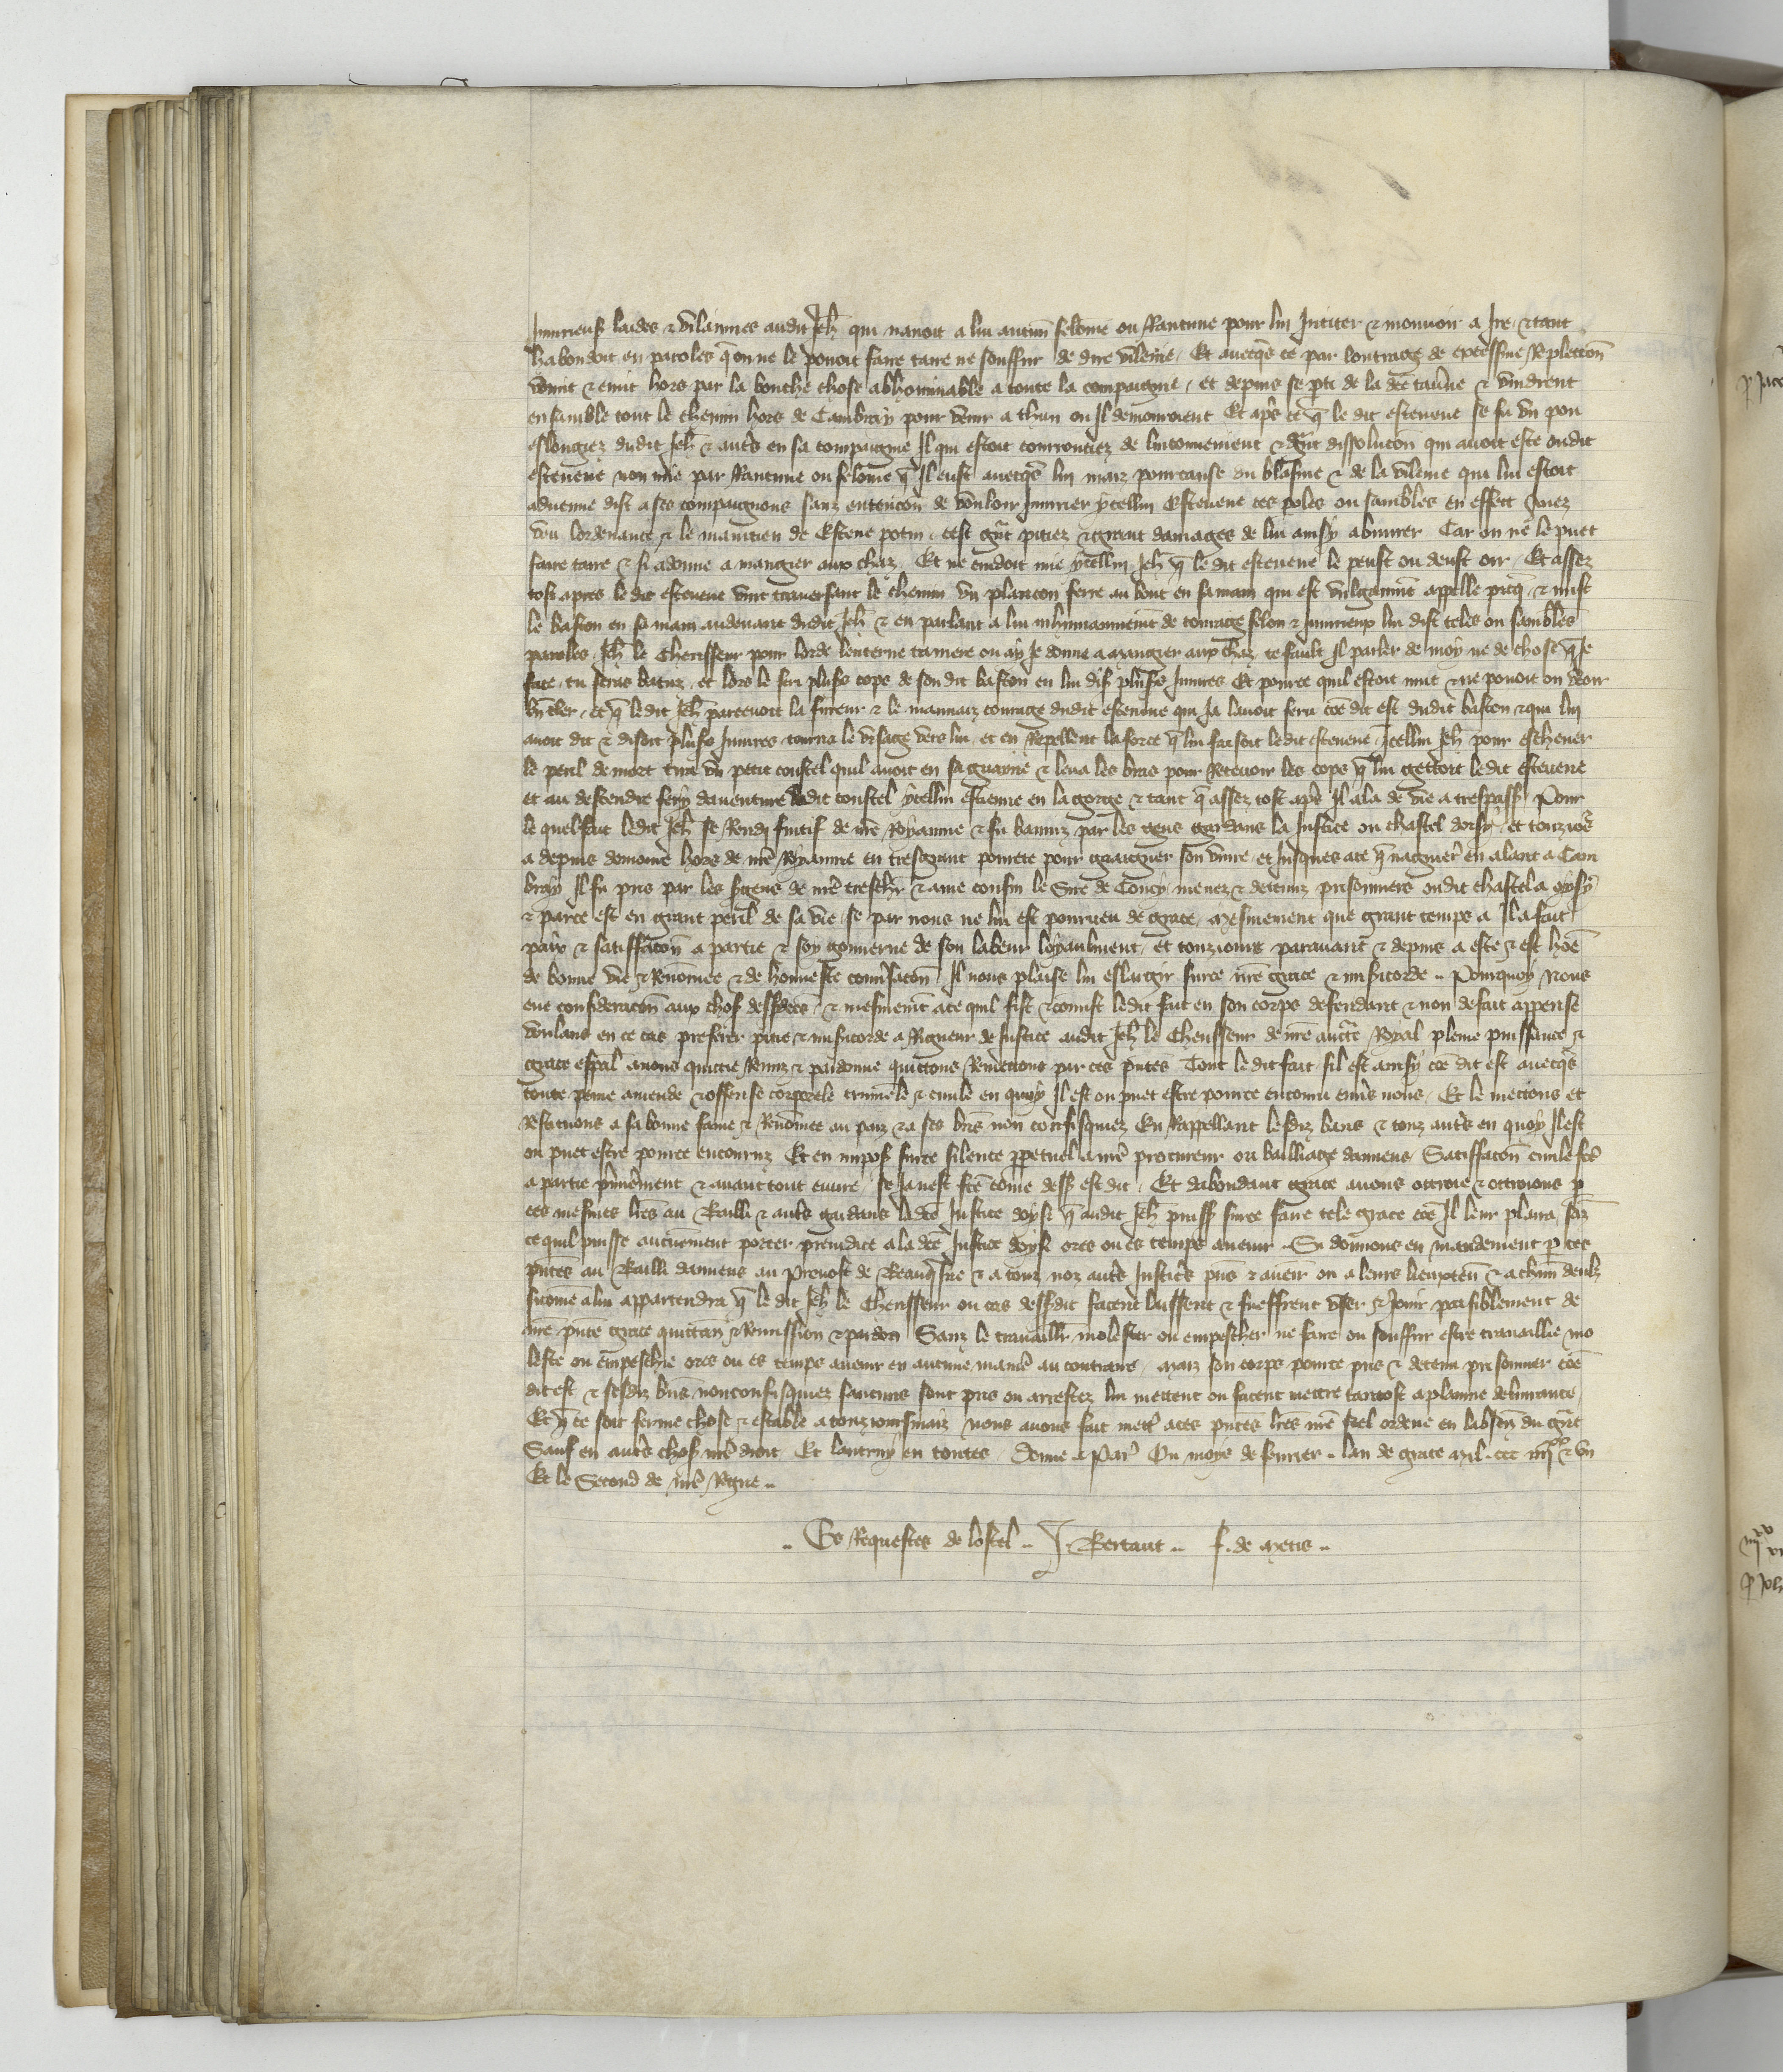 Iniurieuses laides & vilainnes audit Jeh̄ qui navoit a lui aucune felonie ou Rancune pour lui Inciter & mouvoir a Ire & tant
habondoit en paroles q̄ on ne le povoit faire taire ne souffrir de dire vilenie / Et avecq̄s ce par loutrage de excessive Replection̄
vomit & emit hors par la bouche chose abhominable a toute la compaignie / et depuis se p̄ti de la dc̄e taṽne & vindrent
ensamble tout le chemin hors de Cambray pour venir a thun ou Il demouroient Et ap̄s ce q̄ le dit estevene se fu un pou
eslongiez dudit Jeh̄ & aut̄s en sa compaignie Il qui estoit courrouciez de linconvenient & dissolucion̄ qui avoit este oudit
estevene non mie par Rancune ou felonie q̄ Il eust avecq̄s lui maiz pour cause du blasme & de la vilenie qui lui estoit
advenue dist a ses compaignons sanz entencōn de vouloir Iniurier ycellui Estevene ces p̄oles ou sambles en effect Avez
veu lordenance & le maintien de Estene potin / cest gr̄nt pitiez & grant damages de lui ainsy abuvrer Car on ne le puet
faire taire & si a donne a mangier aux chaz / Et ne cuidoit mie ycellui Jeh̄ q̄ le dit estevene le peust ou deust oir / Et assez
tost apres le dit estevene vint traversant le chemin un plancon ferre au bout en sa main qui est vulgaum̄t appelle picq̄ & mist
le baston en sa main audevant dudit Jeh̄ & en parlant a lui inhumainnem̄t de courage felon & Iniurieux lui dist teles ou samblēs
paroles Jeh̄ le Cherisseur pour lorde leuterne ou ay Je donne a mangier aux chaz te fault Il parler de moy ne de chose q̄ Je
face / tu seras batuz / et lors le feri plus̄s cops de son dit baston en lui dis̄ plus̄s Iniures Et pource quil estoit nuit & ne povoit on veoir
cler / et q̄ le dit Jeh̄ parcevoit la fureur & le mauvaiz courage dudit estevene qui Ja lavoit feru cōe dit est dudit baston & qui lui
avoit dit & disoit plus̄s Iniures tourna le visage vers lui / et en Repellent la force q̄ lui faisoit ledit estevene Icellui Jeh̄ pour eschever
le peril de mort tira un petit coustel quil avoit en sa guayne & leva les bras pour Recevoir les cops q̄ lui gettoit le dit estevene
et au descendre fery daventure dudit coustel ycellui estienne en la gorge & tant q̄ assez tost ap̄s Il ala de vie a trespass̄ / Pour
le quel fait ledit Jeh̄ se Rendi fuitif de nr̄e Royaume & fu banniz par les gens gardans la Justice ou chastel doisy / et touziō
a depuis demoure hors de nr̄e Royaume en tresgrant povrete pour gaaignier son vivre / et Jusques ace q̄ nagguer̄ en alant a Cam
bray Il fu pris par les s̄gens de nr̄e treschr̄ & ame cousin le Sire de Coucy menez & detenuz prisonniers oudit chastel a oysy
& parce est en grant peril de sa vie / se par nous ne lui est pourveu de grace / mesmement que grant temps a Il a fait
paix & satisffacōn a partie & soy gouverne de son labeur loyaulment / et touziours paravant & depuis a este & est hōe
de bonne vie & Renomee & de honneste convr̄sacōn Il nous plaise lui eslargir surce nr̄e grace & misericorde .. Pourquoy Nous
eue consideracōn aux chos̄ dess̄dc̄es & mesmem̄t ace quil fist & comist ledit fait en son corps defendant & non de fait appense
voulans en ce cas preferer pitie & misericorde a Rigueur de Justice audit Jeh̄ le Cherisseur de nr̄e auct̄e Royal plaine puissance &
grace esp̄al avons quictie Remiz & pardonne quictons Remectons par ces p̄ntes Tout le dit fait sil est ainsy cōe dit est avecq̄s
toute peine amende & offense corporele criminele & civile en quoy Il est ou puet estre pource encouru envs̄ nous / Et le mectons et
Restituons a sa bonne fame & Renōmee au paiz & a ses bn̄s non confisquiez En Rappellant lesdiz bans & touz aut̄s en quoy Il est
ou puet estre pource encouruz Et en impos̄ surce silence p̄petuel a nr̄e procureur ou bailliage damiens Satisfacōn civile fc̄e
a partie p̄mierement & avant tout euvre / se Ja nest fc̄e cōme dess̄ est dit / Et dabondant grace avons ottroie & ottroions p̄
ces mesmes lr̄es au Bailli & aut̄s gardans ladc̄e Justice doysy q̄ audit Jeh̄ puiss̄ surce faire tele grace cōe Il leur plaira / sāz
ce quil puisse aucunement porter preiudice a la dc̄e Justice doysy ores ou es temps avenir .. Si donnons en mandement p̄ ces
p̄ntes au Bailli damiens au Prevost de Beauq̄sne & a touz noz aut̄s Justic̄s p̄ns & avenir ou a leurs lieuxten̄ & a chūn deulz
sicōme a lui appartendra q̄ le dit Jeh̄ le Cherisseur ou cas dess̄dit facent laissent & sueffrent user & Jouir paisiblement de
nr̄e p̄nte grace quittan̄ & Remission & pardon Sanz le travaillr̄ molester ou empescher ne faire ou souffrir estre travaillie mo
leste ou empeschie ores ou es temps avenir en aucune manie͛ au contraire / Maiz son corps pource pris & detenu prisonnier cōe
dit est & ses diz bn̄s nonconfisquiez saucuns sont pris ou arrestez lui mettent ou facent mettre tantost a plaine delivrance
Et q̄ ce soit ferme chose & estable a touziours maiz nous avons fait mettr̄ a ces p̄ntes lr̄es nr̄e seel ordene en labsēn du grāt
Sauf en aut̄s chos̄ nr̄e droit Et lautruy en toutes / Donne a Par̄ Ou moys de fevrier .. lan de grace Mil ccc iiijxx & un
Et le Second de nr̄e Regne ..
.. Es Requestes de lostel .. J. Bertaut .. J. de Metis ..